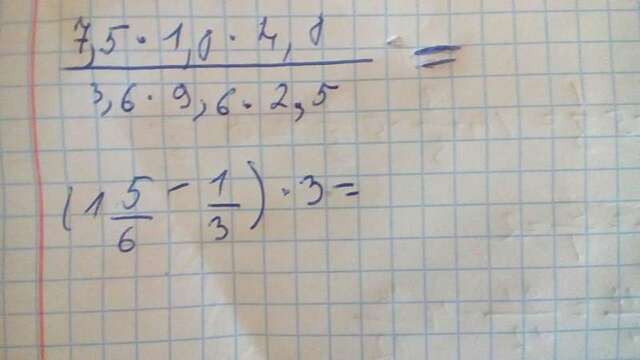 7,5 · 1,8 · 4,8 / 3,6 · 9,6 · 2,5 =
(1 5/6 - 1/3) · 3 =